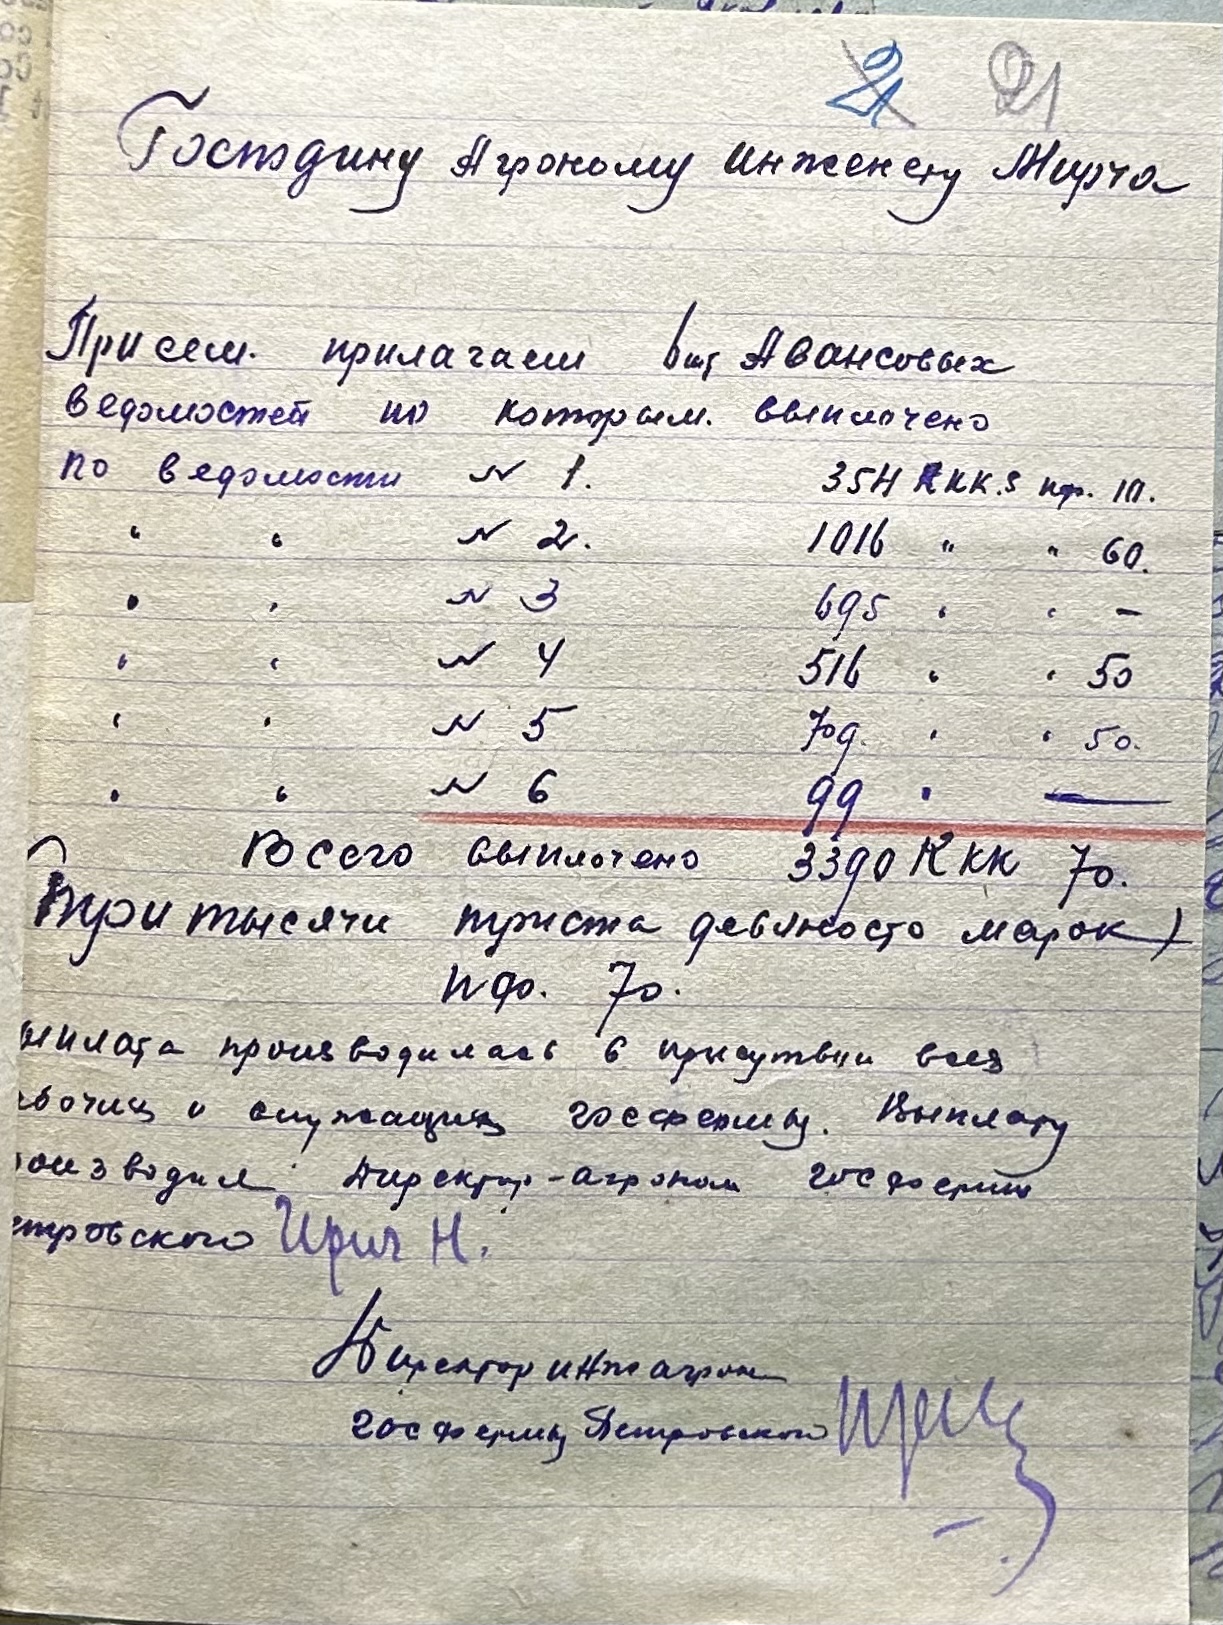 21 21
Господину Агроному инженеру Мирча
При сем. прилагаем 6 шт Авансовых
ведомостей по которым. выплочено
по ведомости № 1. 354 RKK.S пф. 10.
" " № 2. 1016 " " 60.
" " № 3 695 " " —
" " № 4 516 " " 50
" " № 5 709. " " 50.
" " № 6 99 " —
Всего выплочено 3390 RKK 70.
(три тысячи триста девяносто марок)
пф. 70.
ыплата производилась в присутвии всех
абочих и служащих госфермы. Выплату
роизводил Директор-агроном госфермы
етровского Ирич Н.
Директор инж агроном
госфермы Петровского